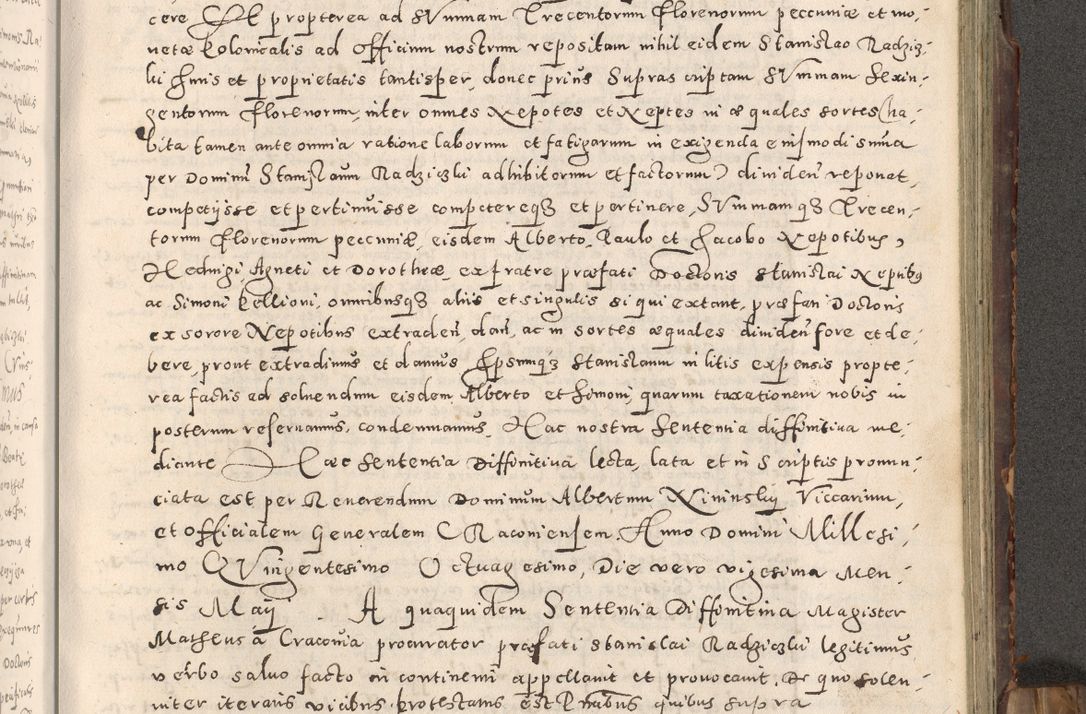 cere Et propterea ad sVmmam Trecentorum florenorum peccuniæ et mo,
netæ Kolonicalis ad officium nostrum repositam nihil eidem Stanislao Radzig,
lii Iuris et proprietatis tantisper, donec prius supras criptam sVmmam sexin,
gentorum florenorum, inter omnes Nepotes et Neptes in æ quales sortes (ha,
bita tamen ante omnia ratione laborum et fatigarum in exigenda eiusmodi suma
per Dominum Stanislaum Radziczki adhibitorum et factorum) dividen reponat,
competijsse et pertinuisse competereq3 et pertinere, sVmmamq3 Trecen,
torum florenorum peccuniæ, eisdem Alberto, Paulo et Jacobo Nepotibus,
Hedvigi Agneti et Dorotheæ ex fratre præfati Doctoris stanislai Neptibus
ac Simoni Kellioni, omnibusq3 aliis et singulis si qui extant, præfati Doctoris
ex sorore Nepotibus extraden, dari, ac in sortes æquales dividen fore et de,
bere, prout extradimus et damus Ipsumq3 Stanislaum in litis expensis propte,
rea factis ad solvendum eisdem Alberto et Simoni, quarum taxationem nobis in
posterum reservamus, condemnamus. Hac nostra sententia diffinitiva me,
diante Hæc sententia Diffinitiva lecta, lata et in scriptis pronun,
ciata est per Reverendum Dominum Albertum Xininskij Viccarium,
et officialem Generalem CRaconiensem. Anno Domini Millesi,
mo QVingentesimo Octuagesimo, Die vero vigesima Men,
sis Maij A quaquidem Sententia Diffinitiva Magister
Matheus á Cracovia procurator præfati stanislai Radziczki legitimus
verbo salvo facto in continenti appellavit et provocavit. De quo solen,
niter iterans vicibus protestatus est Præsentibus quibus supra